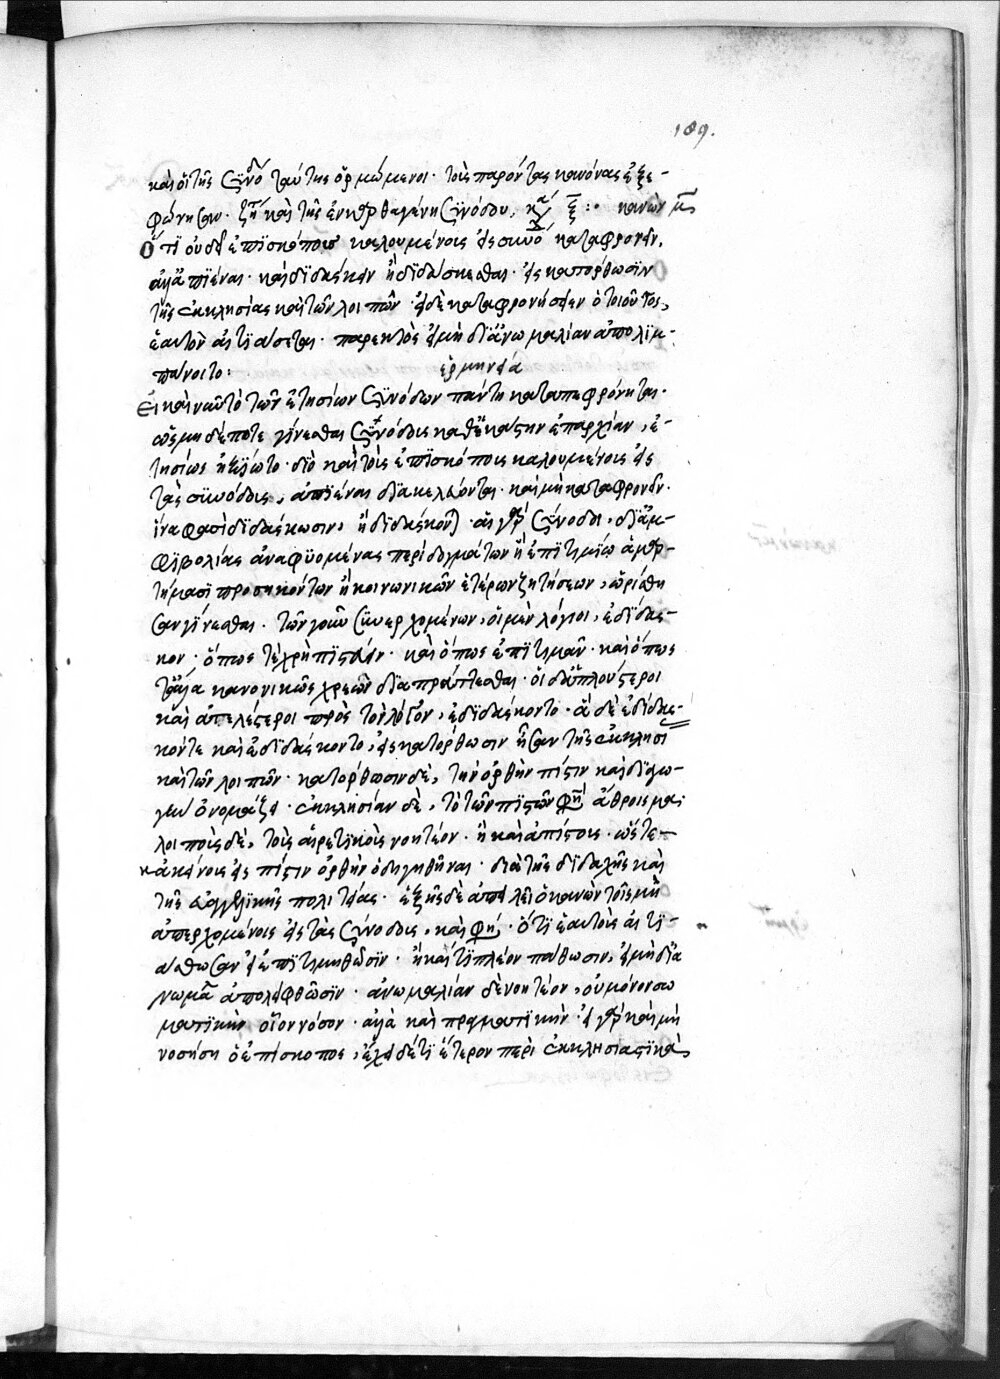 189.
καὶ οἱ τῆς συνόδ ταύτης ὁρμώμενοι· τοὺς παρόντας κανόνας ἐξε-
φώνησαν. ζήτ καὶ τῆς ἐν καρθαγένη συνόδου, κ ξ :· κανὼν μ
Ὅτι οὐ δεῖ ἐπισκόπους καλουμένους εἰς σύνοδο καταφρονεῖν.
ἀλλ' ἀπιέναι· καὶ διδάσκειν ἢ διδάσκεσθαι· εἰς κατόρθωσιν
τῆς ἐκκλησίας καὶ τῶν λοιπῶν· εἰ δὲ καταφρονήσειεν ὁ τοιοῦτος,
ἑαυτὸν αἰτιάσεται· παρεκτὸς εἰ μὴ δι' ἀνωμαλίαν ἀπολιμ-
πάνοιτο: ἑρμηνεία
Εἰ καὶ ταυτὸ τῶν ἐτησίων συνόδων πάντη καταπεφρόνηται·
ὡς μηδέποτε γίνεσθαι συνόδους καθ' ἑκάστην ἐπαρχίαν, ἐ-
τησίως ἠξίωτο· διὸ καὶ τοὺς ἐπισκόπους καλουμένους εἰς
τὰς συνόδους, ἀπιέναι διακελεύονται· καὶ μὴ καταφρονεῖν·
ἵνα φασὶ διδάσκωσιν, ἢ διδάσκοντ· αἱ γὰρ σύνοδοι, δι' ἀμ-
φιβολίας ἀναφυομένας περὶ δογμάτων ἢ ἐπιτιμίω ἁμαρ-
τήμασι προσηκόντων ἢ κοινωνικῶν ἑτέρων ζητήσεων, ὡρίσθη
σαν γίνεσθαι. τῶν γοῦν συνερχομένων, οἱ μὲν λόγιοι, ἐδίδασ-
κον· ὅπως τὲ χρὴ πιστεύειν· καὶ ὅπως ἐπιτιμᾶν· καὶ ὅπως
τἄλλα κανονικῶς χρεὼν διαπράττεσθαι· οἱ δ' ἁπλούστεροι
καὶ ἀτελέστεροι πρὸς τὸν λόγον, ἐδιδάσκοντο· ἃ δὲ ἐδίδασ-
κόντε καὶ ἐδιδάσκοντο, εἰς κατόρθωσιν ἦσαν τῆς ἐκκλησί
καὶ τῶν λοιπῶν· κατόρθωσιν δὲ, τὴν ὀρθὴν πίστιν καὶ διαγω-
γὴν ὀνομάζει· ἐκκλησίαν δὲ, τὸ τῶν πιστῶν φη ἄθροισμα·
λοιποὺς δὲ, τοὺς αἱρετικοὺς νοητέον· ἢ καὶ ἀπίστους· ὥστε
κἀκείνους εἰς πίστιν ὀρθὴν ὁδηγηθῆναι· διὰ τῆς διδαχῆς καὶ
τῆς εὐαγγελικῆς πολιτείας· ἑξῆς δὲ ἀπειλεῖ ὁ κανὼν τοῖς μὴ
ἀπερχομένοις εἰς τὰς συνόδους, καὶ φη, ὅτι ἑαυτοὺς αἰτι-
άσθωσαν εἰ ἐπιτιμηθῶσιν· ἢ καί τι πλέον πάθωσιν, εἰ μὴ δι' ἀ
νωμα ἀπολειφθῶσιν· ἀνωμαλίαν δὲ νοητέον, οὐ μόνον σω
ματικὴν οἷον νόσον· ἀλλὰ καὶ πραγματικὴν· εἰ γὰρ καὶ μὴ
νοσήση ὁ ἐπίσκοπος, ἔχει δέ τι ἕτερον περὶ ἐκκλησιαστικὰ,